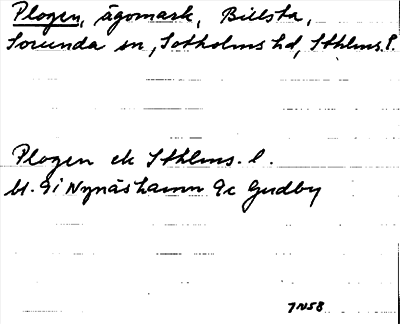 Plogen, ägomark, Billsta,
Sorunda sn, Sotholms hd, Sthlms l.
Plogen ek Sthlms. l.
bl. 9i Nynäshamn 9c Gudby
7N58